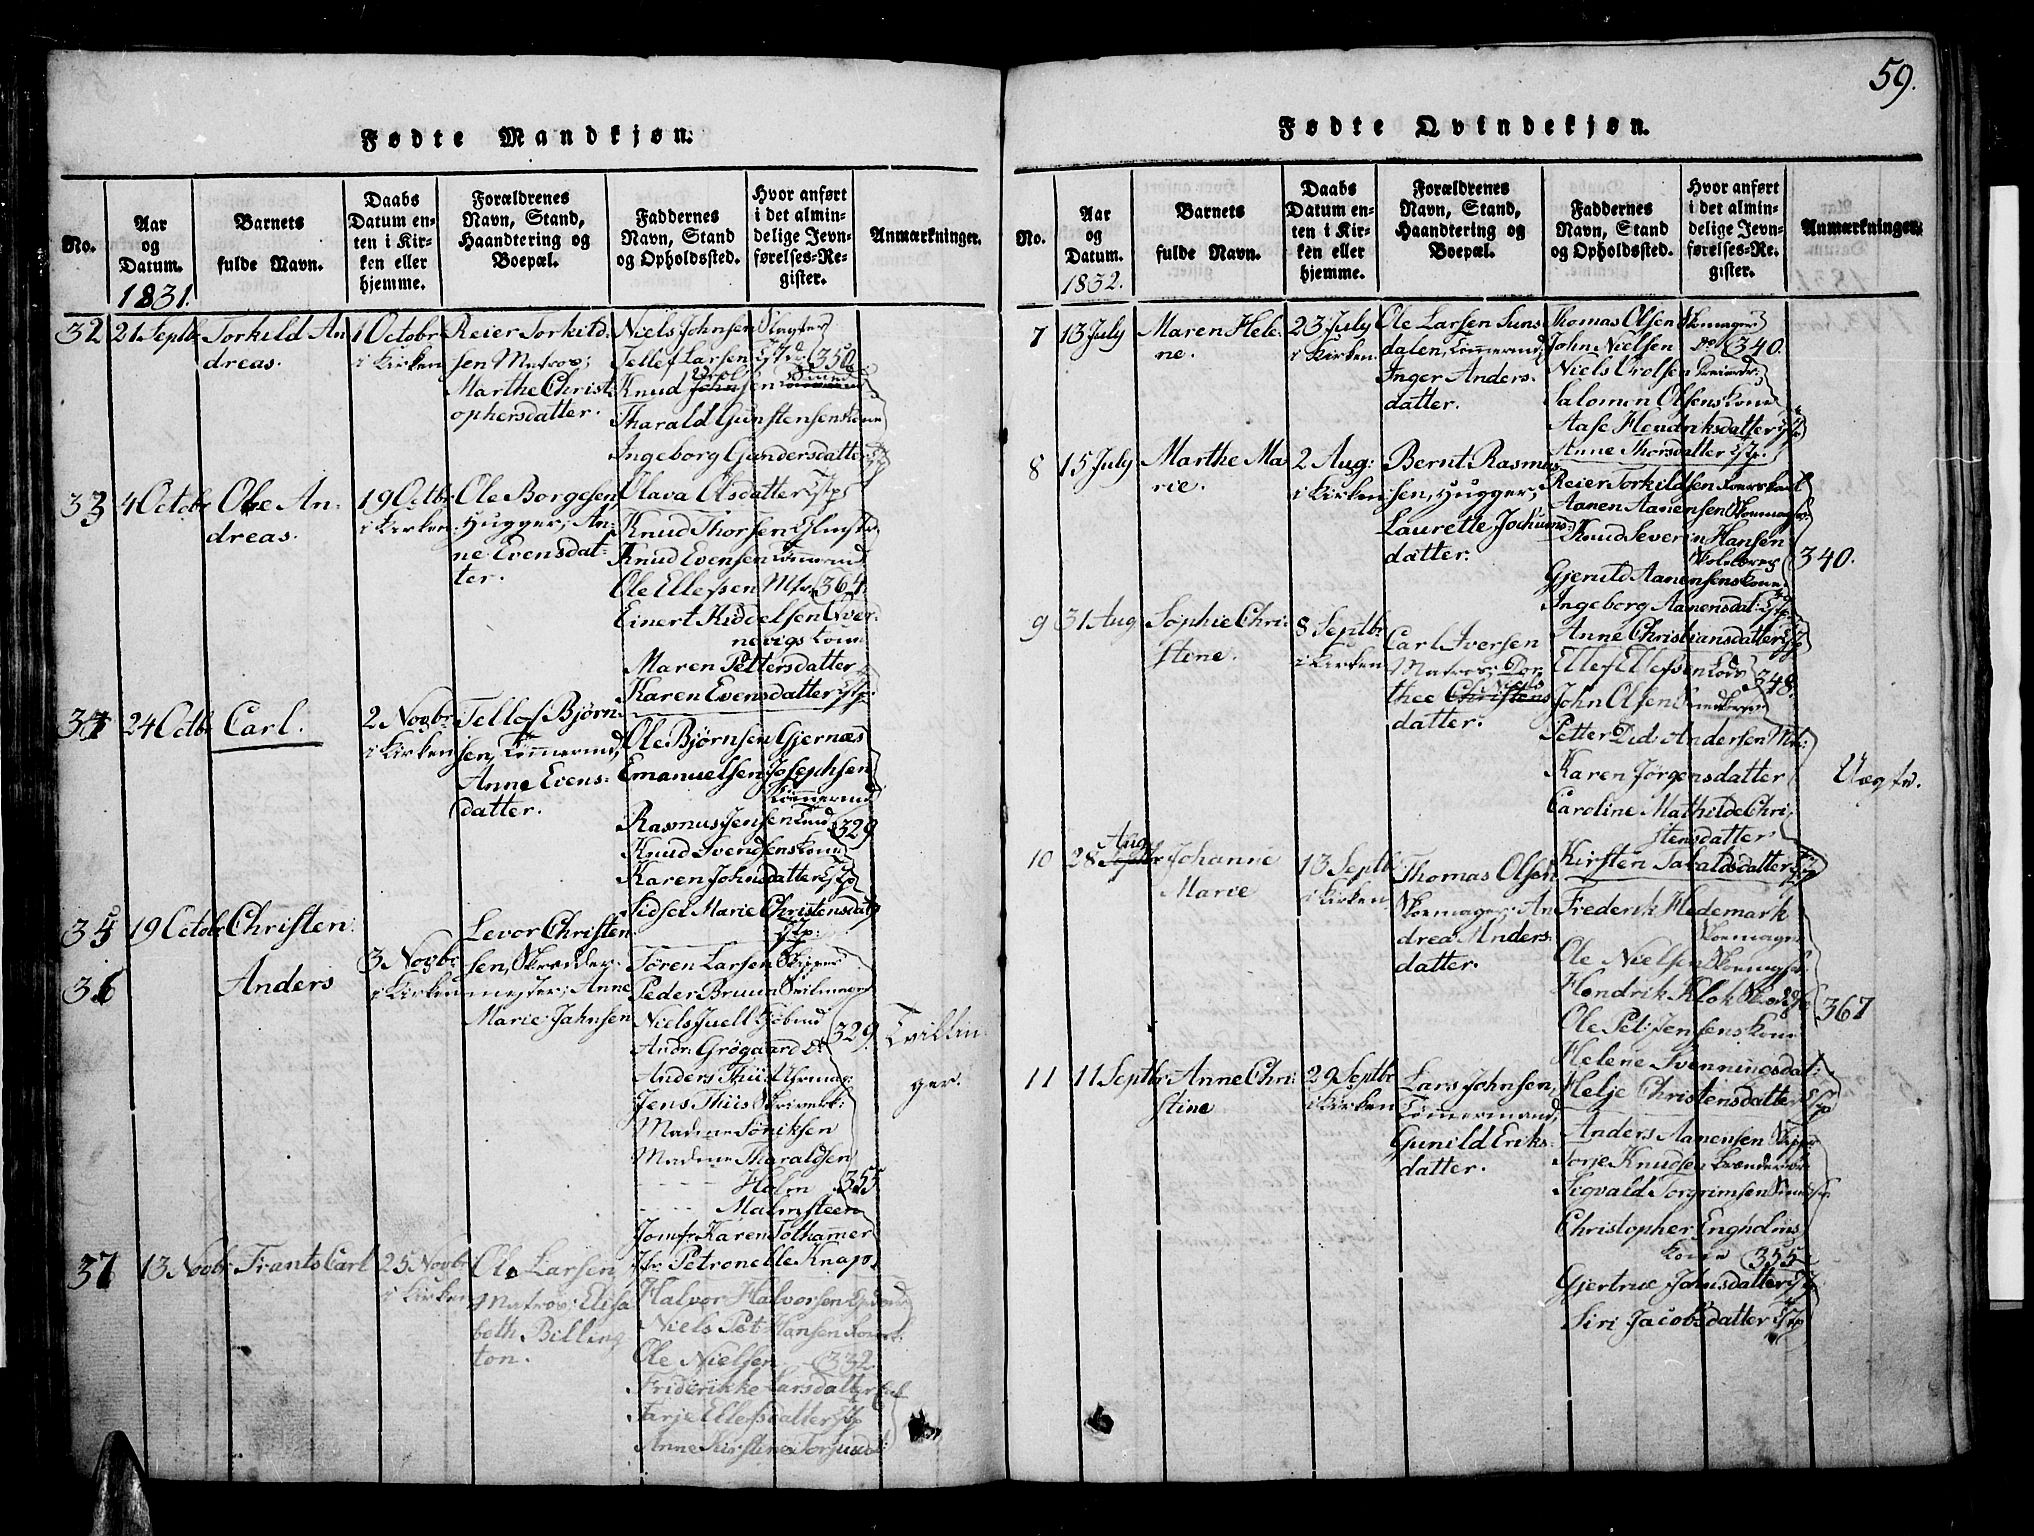 59.
Fødte Mandkjøn.
No.
Aar
og
Datum.
1831.
Barnets
fulde Navn.
Daabs
Datum en-
ten i Kir-
ken eller
hjemme.
Forældrenes
Navn, Stand,
Haandtering og
Boepæl.
Faddernes
Navn, Stand
og Opholdssted.
Hvor anført
i det almin-
delige Jevn-
førelses-Re-
gister.
Anmærkninger.
32
21 Septbr
Torkild An
dreas.
1 Octobr
i Kirken
Reier Torkild-
sen Matros;
Marthe Christ
ophersdatter.
Niels Johnsen
Tellef Larsen
350
Knud Johnsen
Tharald Gunstensens Kone
Ingeborg Gundersdatter
33
4 Octobr
Ole An-
dreas.
19 Octbr
i Kirken.
Ole Borgesen,
Hugger; An-
ne Evensdat-
ter.
Olava Olsdatter
Knud Thorsen
Knud Evensen Tømermd
Ole Ellefsen Mtr. 364.
Einert Kiddelsen Qver-
nevigs Kone
Maren Pettersdatter
Karen Evensdatter
34
24 Octbr
Carl.
2 Novbr
i Kirken
Tellof Bjørn-
sen, Tømermd;
Anne Evens-
datter.
Ole Bjørnsen Gjernæs
Emanuelsen Josephsen
Tømermd
Rasmus Jensen Lund 329
Knud Svendsens Kone
Karen Johnsdatter
Sidsel Marie Christensdatr
35
19 Octobr
Christen.
36
Anders
3 Novbr
i Kirken
Levor Christen
sen, Skredder-
mester; Anne
Marie Jahnsen
Søren Larsen Skipper
Peder Bruun Seilmager
Niels Juell Kjøbmd
329.
Andr. Grøgaard
Anders Thiis Uhrmag.
Jens Thiis
Madme Sønniksen
Madme Tharaldsen
Holm 355
Malmsteen
Jomfr. Karen Tothammer
Jfr. Petronelle Knap
Tvillin-
ger.
37
13 Novbr
Frants Carl
25 Novbr
i Kirken
Ole Larsen,
Matros; Elisa
beth Billing
ton.
Halvor Halvorsen
Niels Pet. Hansen
Ole Nielsen 332
Friderikke Larsdatter
Tarje Ellefsdatter
Anne Kirstine
Fødte Qvindekjøn.
No.
Aar
og
Datum.
1832.
Barnets
fulde Navn.
Daabs
Datum en-
ten i Kir-
ken eller
hjemme.
Forældrenes
Navn, Stand,
Haandtering og
Boepæl.
Faddernes
Navn, Stand
og Opholdssted.
Hvor anført
i det almin-
delige Jevn-
førelses-Re-
gister.
Anmærkninger.
7
13 July
Maren Hele-
ne.
23 July
i Kirken
Ole Larsen Suns
dalen, Tømermd;
Inger Anders-
datter.
Thomas Olsen Skomager
John Nielsen do 340.
Niels Orolsen
Salomon Olsens Kone
Aase Hendriksdatter
Anne Thorsdatter
8
15 July
Marthe Ma
rie.
2 Aug:
i Kirken
Bernt Rasmus
sen, Hugger;
Laurette Jochums-
datter.
Reier Torkildsen
Aanen Aanensen Skomager
Knud Severin Hansen
340.
Gjeruld Aanensens Kone
Ingeborg Aanensdat:
Anne Christiansdatter
9
31 Aug
Sophie Chri-
stine.
8 Septbr
i Kirken
Carl Iversen
Matros; Dor
thee Christens
datter.
Ellef Ellefsen Lods
348.
John Olsen
Petter Did. Andersen Mat.
Karen Jørgensdatter
Caroline Mathilde Chri-
stensdatter
Kirsten
Uægte.
10
28 Septbr
Aug
Johanne
Marie
13 Septbr
i Kirken
Thomas Olsen
Skomager; An
drea Anders-
datter.
Frederik Hedemark
Skomager
Ole Nielsen Skomager
Hendrik Klok
367
Ole Pet. Jensens Kone
Helene Svenningsdat:
Helje Christensdatter
11
11 Septbr
Anne Chri-
stine
29 Septbr
i Kirken
Lars Johnsen,
Tømmermand;
Gunild Eriks-
datter.
Anders Aanensen Skipper
Torje Knudsen
Sigvald Torgrimsen
Christopher Engholms
Kone 355
Gjertrue Jahnsdatter
Siri Jacobsdatter